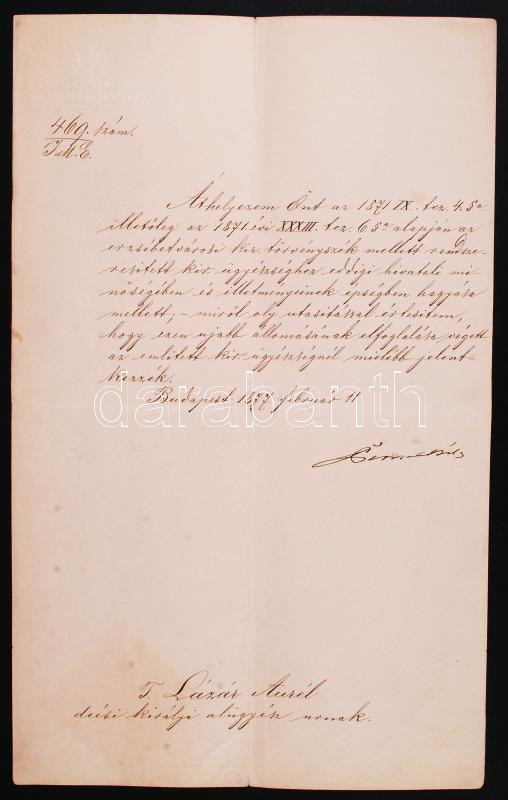 469. szám.
I. M. E.
Áthelyezem Önt az 1871 IX. tcz. 4. §a
illetőleg az 1871. évi XXXIII. tcz. 6 §a alapján az
erzsébetvárosi kir. törvényszék mellett rendsze-
resitett kir. ügyészséghez eddigi hivatali mi-
nőségében és illetményeinek épségben hagyása
mellett; – miről oly utasitással értesitem,
hogy ezen ujabb állomásának elfoglalása végett
az emlitett kir. ügyészségnél mielőbb jelent-
kezzék.
Budapest 1877 február 11
darabanth
T. Lázár Aurél
deési királyi alügyész urnak.